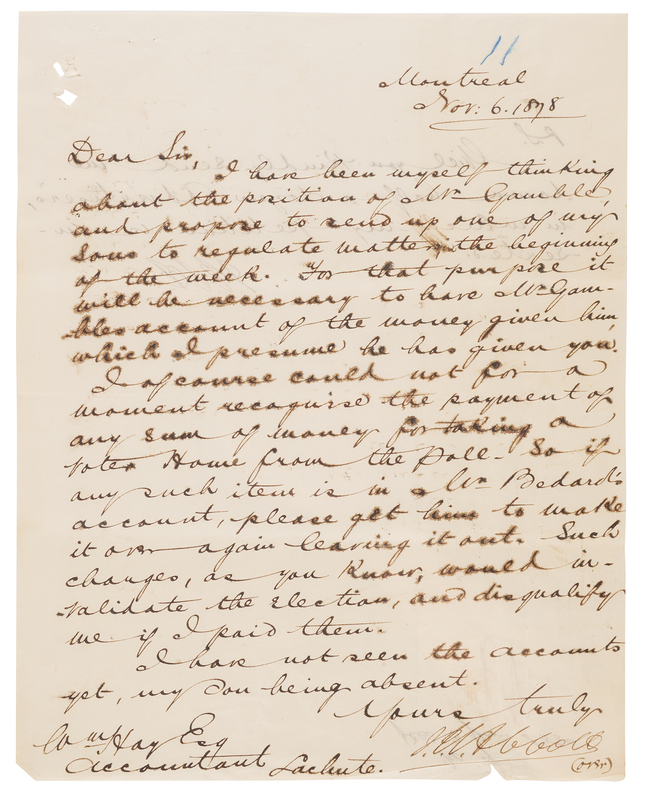 11
Montreal
Nov: 6. 1878
Dear Sir,
I have been myself thinking
about the position of Mr Gamble,
and propose to send up one of my
Sons to regulate matters the beginning
of the week. For that purpose it
will be necessary to have Mr Gam-
bles account of the money given him,
which I presume he has given you.
I of course could not for a
moment recognise the payment of
any sum of money for taking a
voter Home from the Poll - So if
any such item is in Mr Bedard's
account, please get him to make
it over again leaving it out. Such
charges, as you know, would in-
-validate the election, and disqualify
me if I paid them.
I have not seen the accounts
yet, my Son being absent.
Yours truly
J.J.C. Abbott
Wm Hay Esq
Accountant Lachute.
(over)